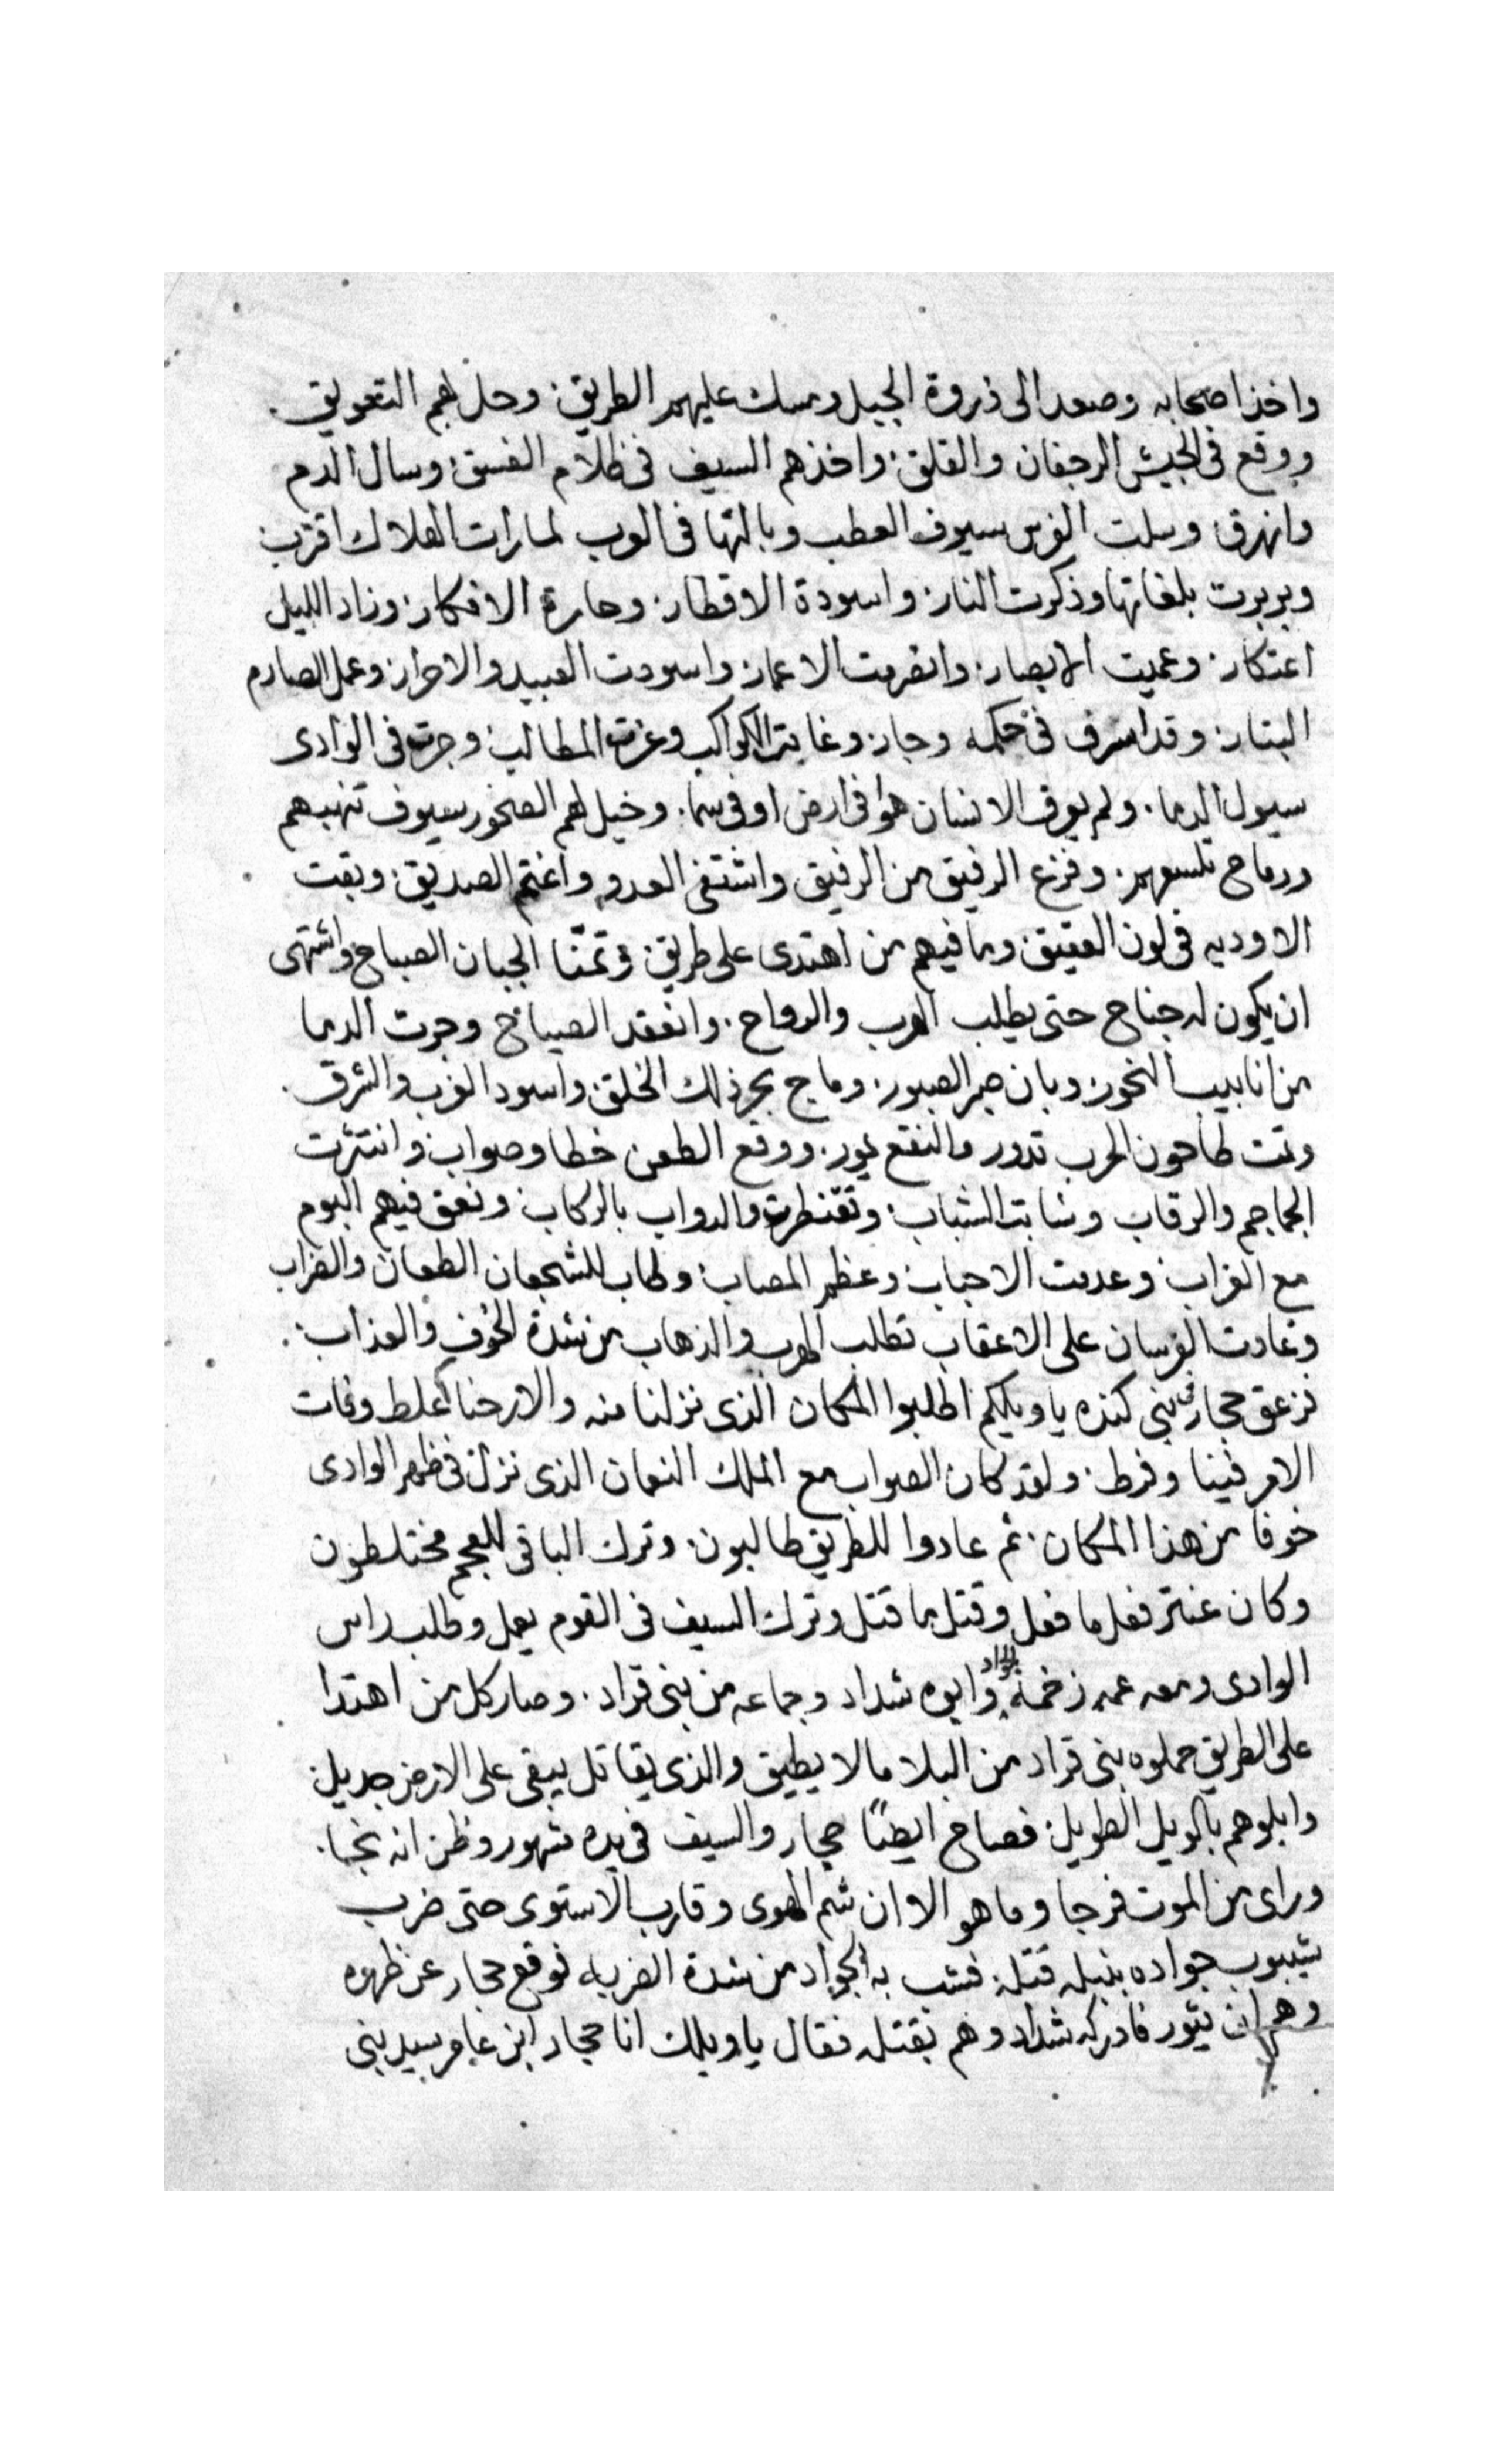 واخذ اصحابه وصعد الى ذروة الجبل ومسك عليهم الطريق. وحل لهم التعويق.
ووقع فى الجيش الرجفان والقلق. واخذهم السيف فى ظلام الغسق. وسال الدم
وانهرق وسلت الفرس سيوف العطب وبالتها فى العرب لما رات الهلاك اقترب
وبربرت بلغاتها وذكرت النار. واسودة الاقطار. وحارة الافكار. وزاد الليل
اعتكار. وعميت الابصار. وانصرمت الاعمار. واسودت العبيد والاحرار. وعمل الصارم
البتار. وقد اسرف فى حكمه وجار. وغابت الكواكب وعزت المطالب. وجرت فى الوادى
سيول الدما. ولم يعرف الانسان هوا فى ارض او فى سما. وخيل لهم الصخور سيوف تنهبهم
ورماح تلسعهم. وفزع الرفيق من الرفيق واشتفى العدو واغتم الصديق. وبقت
الاوديه فى لون العقيق. وما فيهم من اهتدى على طريق. وتمنّا الجبان الصباح واشتهى
ان يكون له جناح حتى يطلب الهرب والرواح. وانعقد الصياح وجرت الدما
من انابيب النحور. وبان صبر الصبور. وماج بحر ذلك الخلق. واسود الغرب والشرق.
وتمت طاحون الحرب تدور والنقع يور. ووقع الطعن خطا وصواب. وانتثرت
الجماجم والرقاب وشابت الشباب. وتقنطرت والدواب بالركاب. ونعق فيهم البوم
مع الغراب. وعدمت الاحباب. وعظم المصاب. وطاب للشجعان الطعان والضراب
وعادت الفرسان على الاعقاب تطلب الهرب والذهاب من شدة الخوف والعذاب.
فزعق حجار فى بنى كنده يا ويلكم اطلبوا المكان الذى نزلنا منه والا رحنا غلط وفات
الامر فينا وفرط. ولقد كان الصواب مع الملك النعمان الذى نزل فى ظهر الوادى
خوفا من هذا المكان. ثم عادوا للطريق طالبون. وترك الباقى للعجم مختلطون
وكان عنتر فعل ما فعل وقتل ما قتل وترك السيف فى القوم يعمل وطلب راس
الوادى ومعه عمه زخمة الجواد وابوه شداد وجماعه من بنى قراد. وصار كل من اهتدا
على الطريق حملوه بنى قراد من البلا ما لا يطيق والذى يقاتل يبقى على الارض جديل.
وابلوهم بالويل الطويل. فصاح ايضًا حجار والسيف فى يده مشهور وظن انه نجا.
وراى من الموت فرجا وما هو الا وان شم الهوى وقارب الاستوى حتى ضرب
شيبوب جواده بنبله قتله. فشب به الجواد من شدة الضربه فوقع حجار عن ظهره
وهم ان يثور فادركه شداد وهم بقتله فقال يا ويلك انا حجار ابن عامر سيد بنى